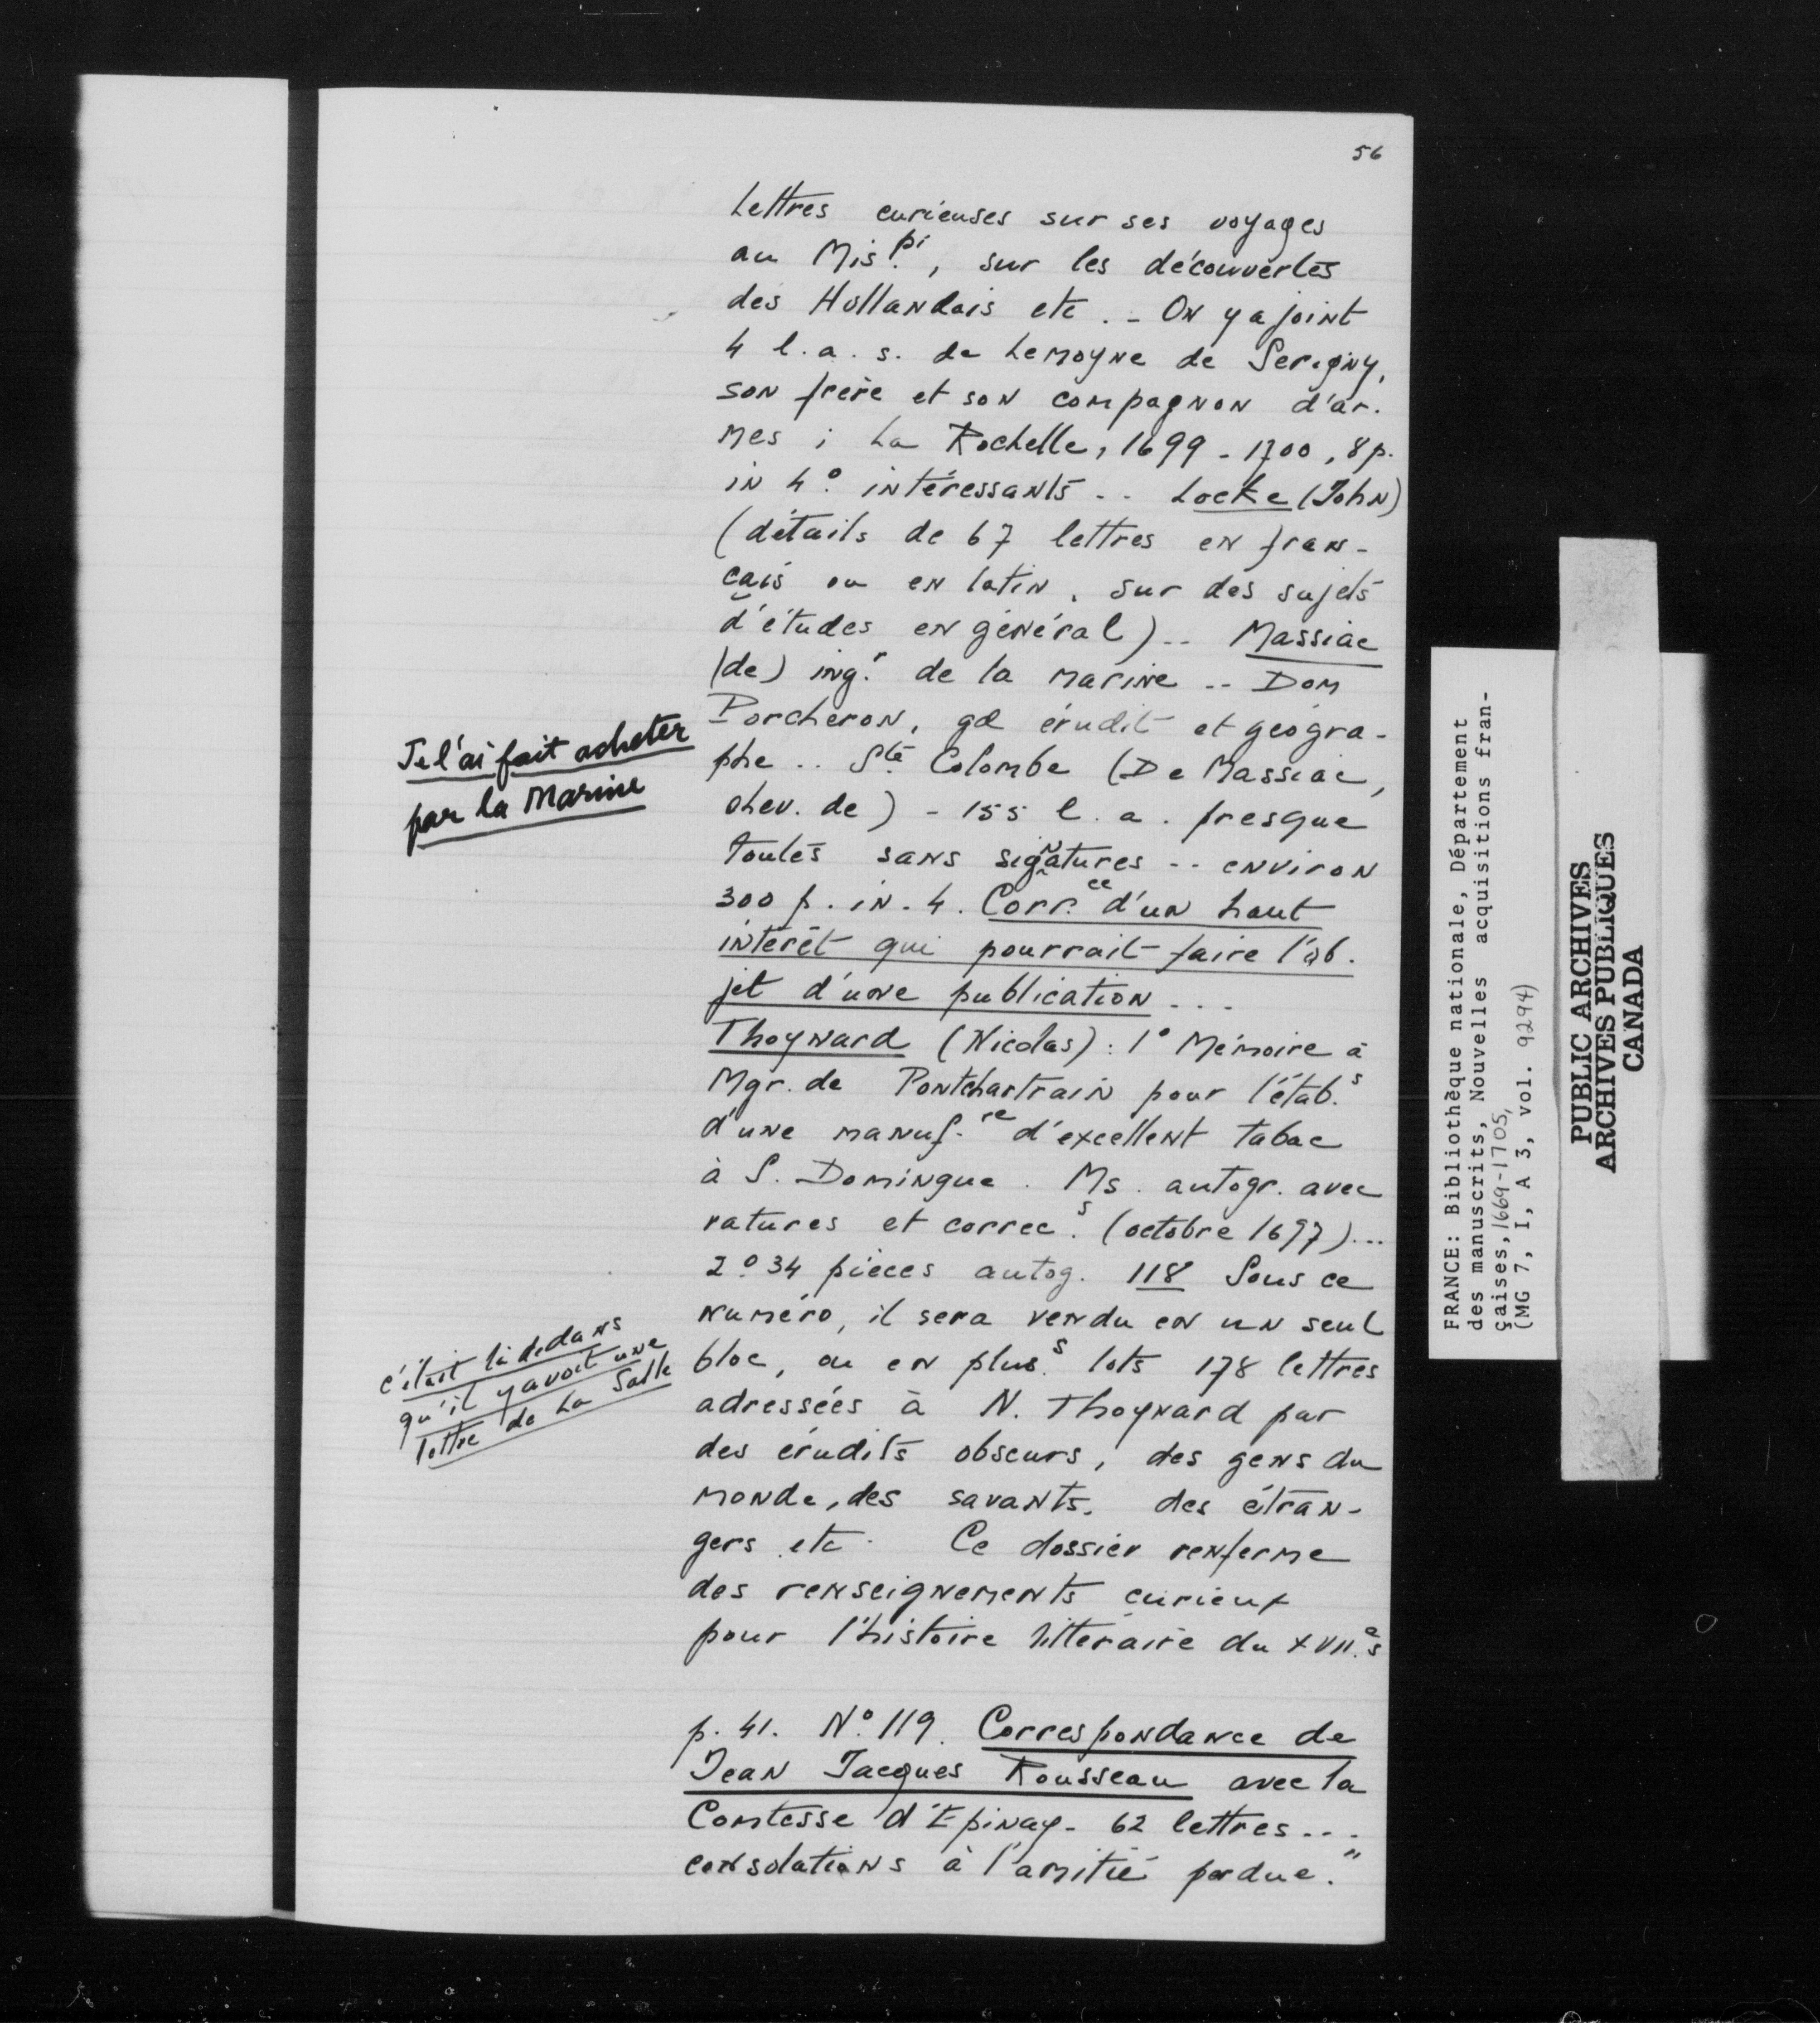 56
Lettres curieuses sur ses voyages
au Mis.pi, sur les découvertes
des Hollandais etc. - On y a joint
4 l. a. s. de Lemoyne de Serigny,
son frère et son compagnon d'ar-
mes ; La Rochelle, 1699 - 1700, 8 p.
in 4.º intéressants .. Locke (John)
(détails de 67 lettres en fran-
çais ou en latin, sur des sujets
d'études en général) .. Massiac
(de) ing.r de la marine .. Dom
Porcheron, gd érudit et géogra-
phe .. Ste Colombe (De Massiac,
chev. de) - 155 l. a. presque
toutes sans signatures .. environ
300 p. in-4. Corr.ce d'un haut
intérêt qui pourrait faire l'ob-
jet d'une publication ...
Thoynard (Nicolas) : 1º Mémoire à
Mgr. de Pontchartrain pour l'étab.s
d'une manuf.re d'excellent tabac
à S. Domingue. Ms. autogr. avec
ratures et correc.s (octobre 1697)...
2º 34 pièces autog. 118 Sous ce
numéro, il sera vendu en un seul
bloc, ou en plus.s lots 178 lettres
adressées à N. Thoynard par
des érudits obscurs, des gens du
monde, des savants, des étran-
gers etc. Ce dossier renferme
des renseignements curieux
pour l'histoire littéraire du XVII.e s
p. 41. Nº 119. Correspondance de
Jean Jacques Rousseau avec la
Comtesse d'Epinay - 62 lettres ...
consolations à l'amitié perdue."
Je l'ai fait acheter
par la Marine
c'était là dedans
qu'il y avait une
lettre de La Salle
FRANCE: Bibliothèque nationale, Département
des manuscrits, Nouvelles acquisitions fran-
çaises, 1669-1705,
(MG 7, I, A 3, vol. 9294)
PUBLIC ARCHIVES
ARCHIVES PUBLIQUES
CANADA